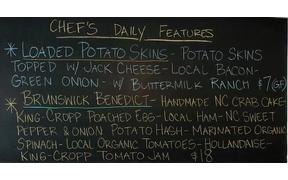 CHEF'S DAILY FEATURES
* LOADED POTATO SKINS - POTATO SKINS
TOPPED W/ JACK CHEESE - LOCAL BACON -
GREEN ONION - W/ BUTTERMILK RANCH $7 (GF)
* BRUNSWICK BENEDICT - HANDMADE NC CRAB CAKE -
KING-CROPP POACHED EGG - LOCAL HAM - NC SWEET
PEPPER & ONION POTATO HASH - MARINATED ORGANIC
SPINACH - LOCAL ORGANIC TOMATOES - HOLLANDAISE -
KING-CROPP TOMATO JAM $18